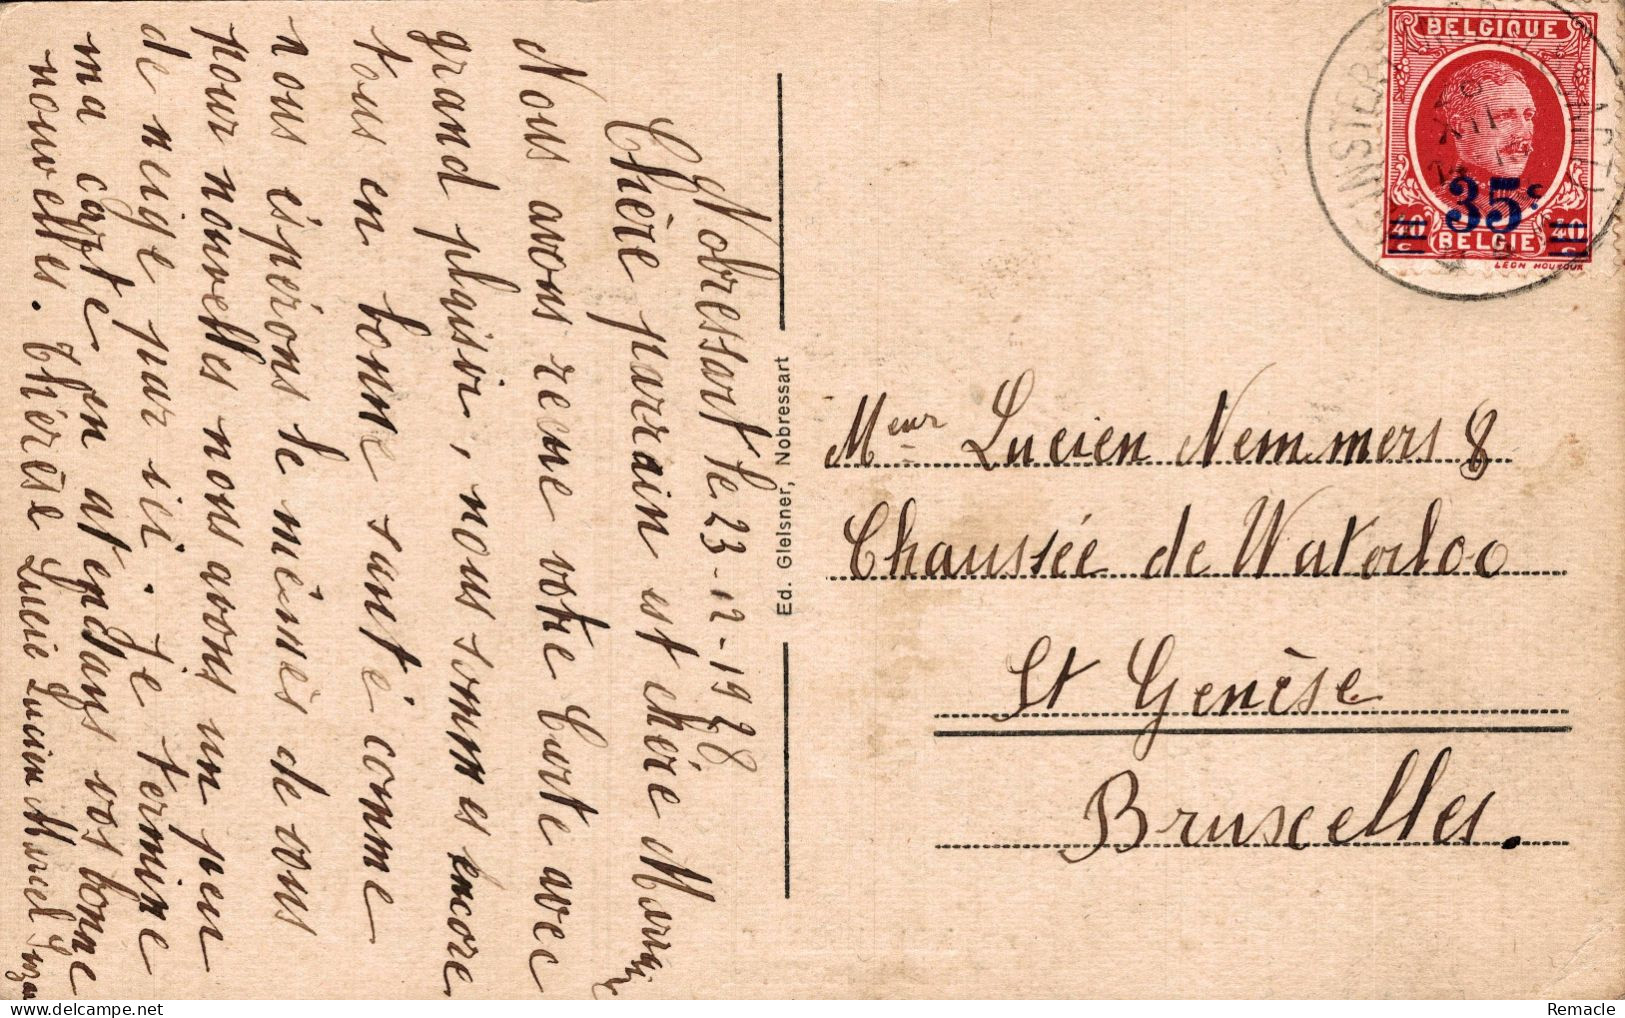 Nobressart le 23-12-1928
Chère parrain est chére Marrai
Nous avons resue votre Carte avec
grand plaisir, nous sommes encore
tous en bonne santé comme
nous éspérons le mêmes de vous
pour nouvelles nous avons un peu
de neige par ici. Je termine
ma carte en attendans vos bonne
nouvelles. Thérèse Lucie Lucien Marcel
Ed. Gleisner, Nobressart
BELGIQUE
35c
40c BELGIE 40c
LEON HOUYOUX
Meur Lucien Nemmers 8
Chaussée de Waterloo
St Genèse
Bruxelles.
Remacle